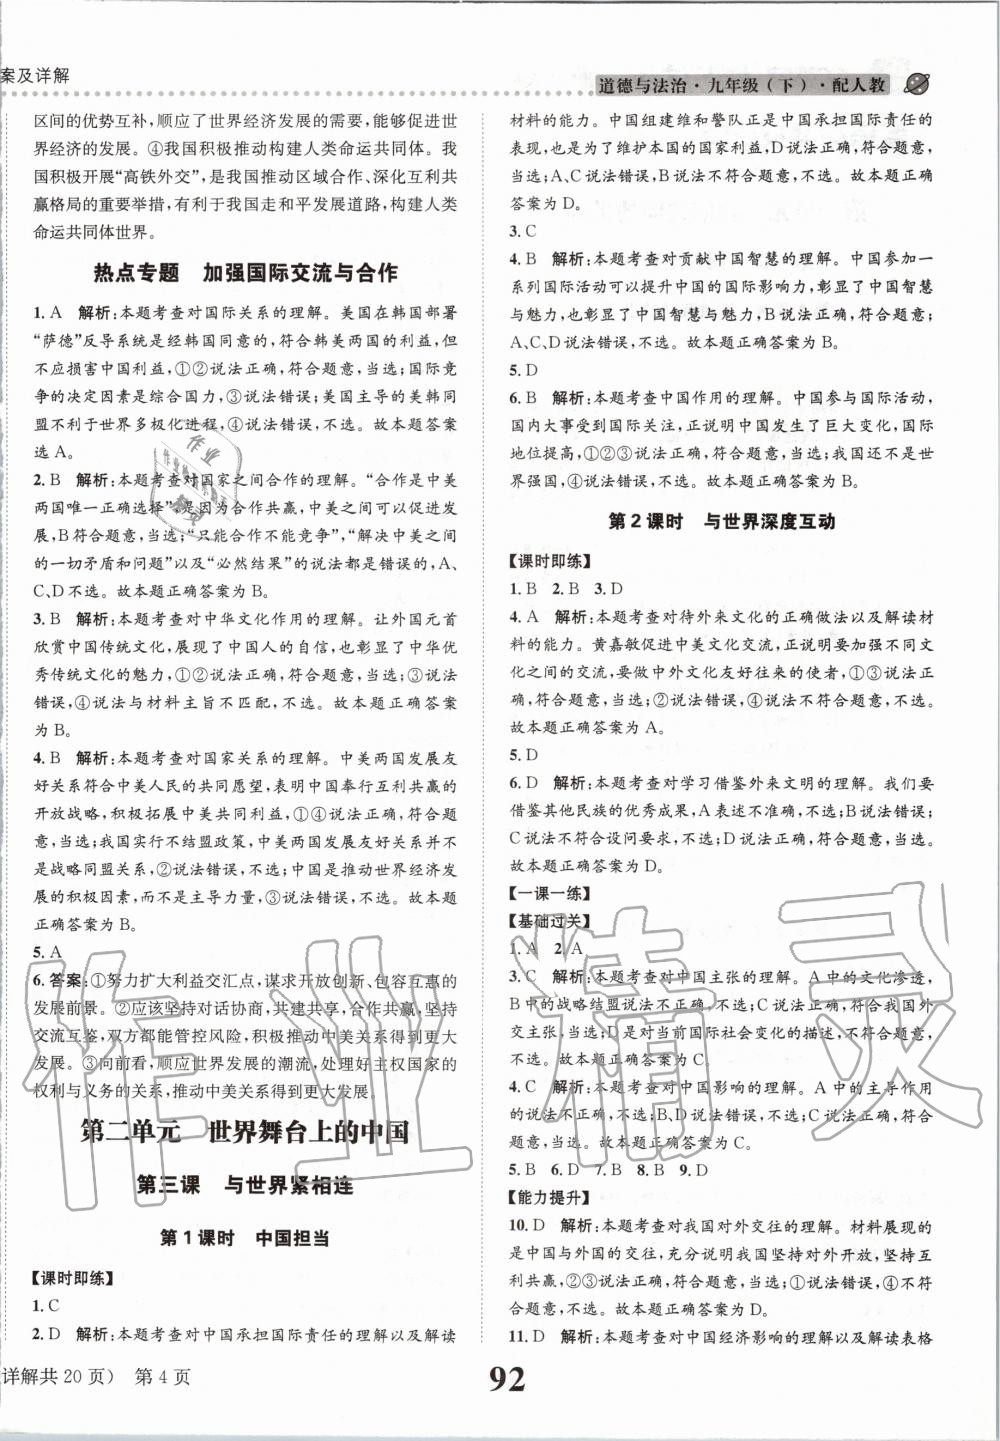 案及详解
道德与法治·九年级(下)·配人教
区间的优势互补,顺应了世界经济发展的需要,能够促进世
界经济的发展。④我国积极推动构建人类命运共同体。我
国积极开展“高铁外交”,是我国推动区域合作、深化互利共
赢格局的重要举措,有利于我国走和平发展道路,构建人类
命运共同体世界。
热点专题 加强国际交流与合作
1. A 解析:本题考查对国际关系的理解。美国在韩国部署
“萨德”反导系统是经韩国同意的,符合韩美两国的利益,但
不应损害中国利益,①②说法正确,符合题意,当选;国际竞
争的决定因素是综合国力,③说法错误;美国主导的美韩同
盟不利于世界多极化进程,④说法错误,不选。故本题答案
选A。
2. B 解析:本题考查对国家之间合作的理解。“合作是中美
两国唯一正确选择”是因为合作共赢,中美之间可以促进发
展,B符合题意,当选;“只能合作不能竞争”,“解决中美之间
的一切矛盾和问题”以及“必然结果”的说法都错误,A、C、
D不选。故本题正确答案为B。
3. B 解析:本题考查对中华文化作用的理解。让外国元首
欣赏中国传统文化,展现了中国人的自信,也彰显了中华优
秀传统文化的魅力,①②说法正确,符合题意,当选;③说法
错误,④说法与材料主旨不匹配,不选。故本题正确答案
为B。
4. B 解析:本题考查对国家关系的理解。中美两国发展友
好关系符合中美人民的共同愿望,表明中国奉行互利共赢的
开放战略,积极拓展中美共同利益,①④说法正确,符合题
意,当选;我国实行不结盟政策,中美两国发展友好关系并不
是战略同盟关系,②说法错误,不选;中国是推动世界经济发展
的积极因素,而不是主导力量,③说法错误,不选。故本题
正确答案为B。
5. A
6. 答案:①努力扩大利益交汇点,谋求开放创新、包容互惠的
发展前景。②应该坚持对话协商,共建共享,合作共赢,坚持
交流互鉴,双方都能管控风险,积极推动中美关系得到更大
发展。③向前看,顺应世界发展的潮流,处理好主权国家的
权利与义务的关系,推动中美关系得到更大发展。
第二单元 世界舞台上的中国
第三课 与世界紧相连
第1课时 中国担当
【课时即练】
1. C
2. D 解析:本题考查对中国承担国际责任的理解以及解读
材料的能力。中国组建维和警队正是中国承担国际责任的
表现,也是为了维护本国的国家利益,D说法正确,符合题意,
当选;A、C说法错误,B说法不符合题意,不选。故本题正确
答案为D。
3. C
4. B 解析:本题考查对贡献中国智慧的理解。中国参加一
系列国际活动可以提升中国的国际影响力,彰显了中国智慧
与魅力,也彰显了中国智慧与魅力,B说法正确,符合题意;
A、C、D说法错误,不选。故本题正确答案为B。
5. D
6. B 解析:本题考查对中国作用的理解。中国参与国际活动,
国内大事受到国际关注,正说明中国发生了巨大变化,国际
地位提高,①②③说法正确,符合题意,当选;我国还不是世
界强国,④说法错误,不选。故本题正确答案为B。
第2课时 与世界深度互动
【课时即练】
1. B 2. B 3. D
4. A 解析:本题考查对待外来文化的正确做法以及解读材
料的能力。黄嘉敏促进中美文化交流,正说明要加强不同文
化之间的交流,要做中外文化友好往来的使者,①③说法正
确,符合题意,当选;②④说法错误,不符合题意,不选。
故本题正确答案为A。
5. D
6. D 解析:本题考查对学习借鉴外来文明的理解。我们要
借鉴其他民族的优秀成果,A表述不准确,不选;B说法错误;
C说法不符合设问要求,不选;D说法正确,符合题意,当选。
故本题正确答案为D。
【一课一练】
【基础过关】
1. A 2. A
3. C 解析:本题考查对中国主张的理解。A中的文化渗透,
B中的战略结盟说法不正确,不选;C说法正确,符合我国外
交主张,当选;D是对当前国际社会变化的描述,不符合题意,
不选。故本题正确答案为C。
4. C 解析:本题考查对中国影响的理解。A中的主导作用
的说法错误,不选;B、D说法错误,不选;C说法正确,符合
题意,当选。故本题正确答案为C。
5. B 6. D 7. B 8. B 9. D
【能力提升】
10. D 解析:本题考查对我国对外交往的理解。材料展现的
是中国与外国的交往,充分说明我国坚持对外开放,坚持互
利共赢,②③说法正确,符合题意,当选;①说法错误,④不符
合题意,不选。故本题正确答案为D。
11. D 解析:本题考查对中国经济影响的理解以及解读表格
详解共20页) 第4页
92
作业精灵